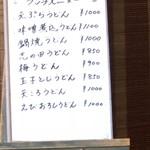 天ぷらうどん ¥1000
味噌煮込うどん ¥1000
鍋焼うどん ¥1000
志の田うどん ¥850
梅うどん ¥900
玉子とじうどん ¥850
天ころうどん ¥1000
えびおろしうどん ¥1000